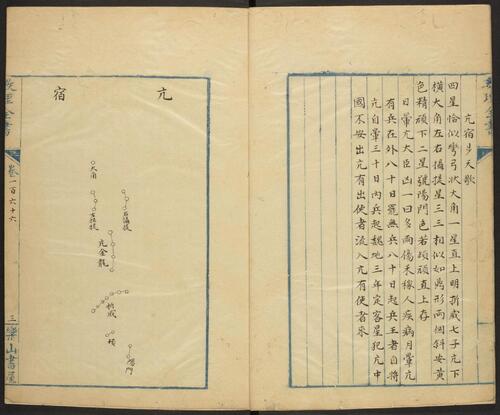 亢宿步天歌
四星恰似彎弓狀大角一星直上明折威七子亢下
橫大角左右攝提星三三相似如鼎形兩個斜安黃
色精頑下二星號陽門色若頑頑直上存
日暈亢大臣凶一曰多雨傷禾稼人疾病月暈亢
有兵在外八十日罷無兵八十日起兵王者自將
亢自暈三十日內兵起魏地三年定客星犯亢中
國不安出亢有出使者流入亢有使者來
亢
宿
大角
右攝提
左攝提
亢金龍
折威
頑
陽門
卷一百六十六
三樂山書屋